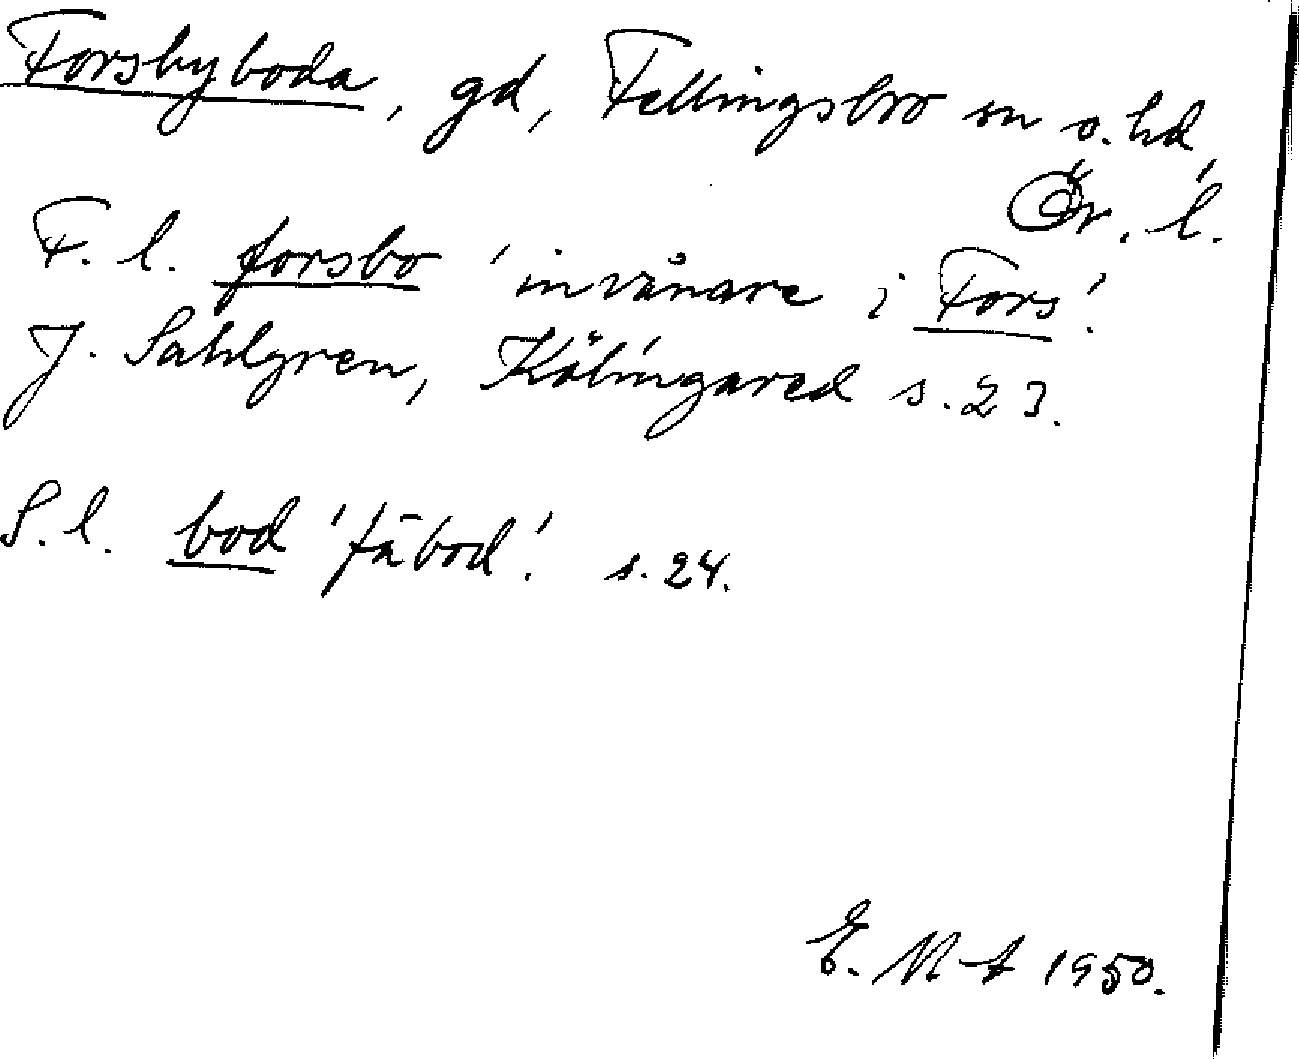 Forsbyboda, gd, Fellingsbro sn o. hd,
Ör. l.
F. l. forsbo 'invånare i Fors'.
J. Sahlgren, Kölingared s. 23.
S. l. bod 'fäbod'. s. 24.
E. M-t 1950.